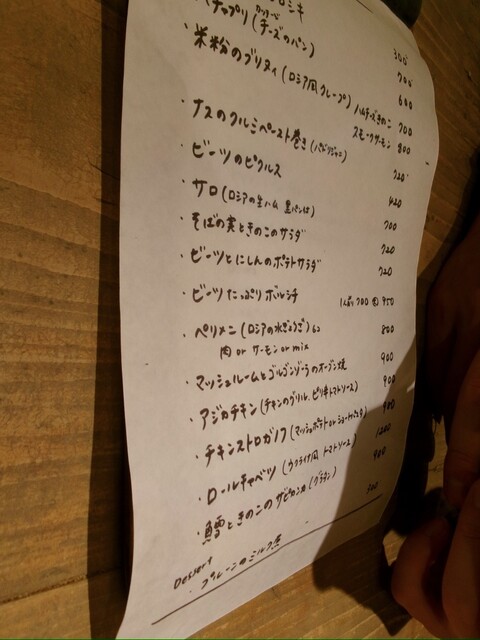 ロシキ 300
ハチャプリ (チーズのパン) 700
・米粉のブリヌイ (ロシア風クレープ) ハムチーズきのこ 600 700
スモークサーモン 800
・ナスのクルミペースト巻き (バドリジャーニ) 720
・ビーツのピクルス 420
・サロ (ロシアの生ハム 黒パン付) 700
・そばの実ときのこのサラダ 720
・ビーツとにしんのポテトサラダ 720
・ビーツたっぷりボルシチ 1人前 700 950
・ペリメニ (ロシアの水ぎょうざ) 6コ 800
肉 or サーモン or mix
・マッシュルームとゴルゴンゾーラのオーブン焼 900
・アジカチキン (チキンのグリル、ピリ辛トマトソース) 900
・チキンストロガノフ (マッシュポテト or ショートパスタ) 980
・ロールキャベツ (ウクライナ風 トマトソース) 1200
・鱈ときのこのザピカンカ (グラタン) 980
Dessert 500
・プルーンのミルク煮